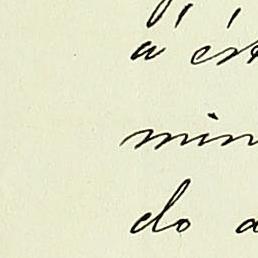 aést
min
do a